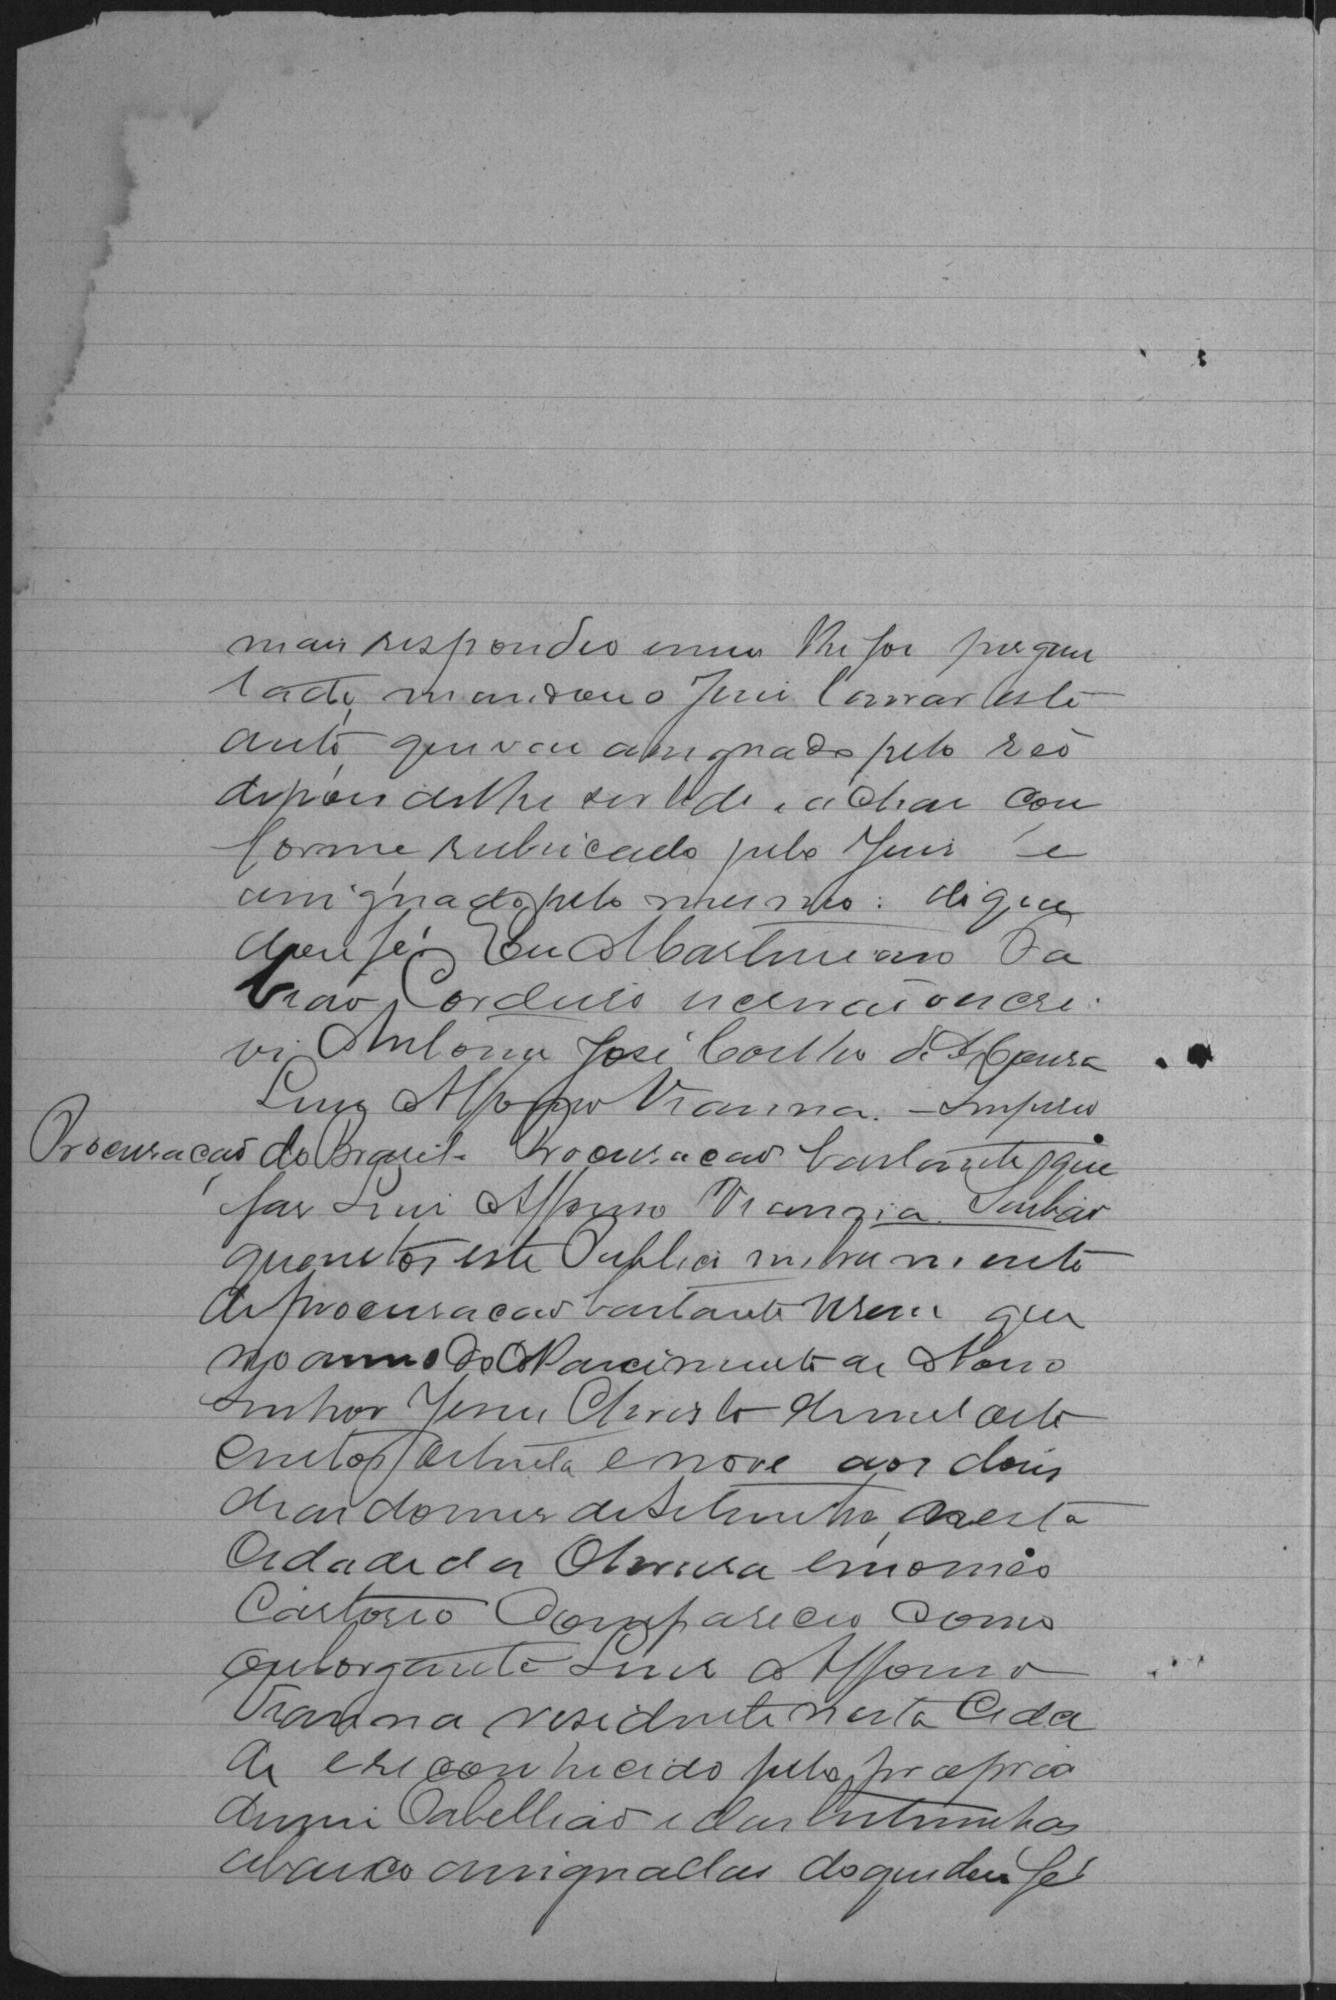 mais respondeo nem lhe foi pergun
tado, mandou o Juis lavrar este
auto, que vai assignado pelo reo
depois de lhe ser lido, e achar con
forme rubricado pelo Juis e
assignado pelo mesmo: digo e
dou fé. Eu Martiniano Fa
brao Cordeiro escrivão o escre
vi Antonio José Coelho de Moura
Luis Affonso Vianna. - Imperio
Procuração do Brasil - Procuração bastante que
fas Luis Affonso Vianna Saibão
quantos este Publico instrumento
de procuração bastante virem que
no anno do Nascimento de Nosso
Senhor Jesus Christo de mil oito
centos setenta e nove aos dois
dias do mes de Setembro, nesta
Cidade da em o meo
Cartorio Compareceu como
outorgante Luis Affonso
Vianna residente nesta Cida
de e reconhecido pelo proprio
de mim Tabellião e das testemunhas
abaixo assignadas do que dou fé